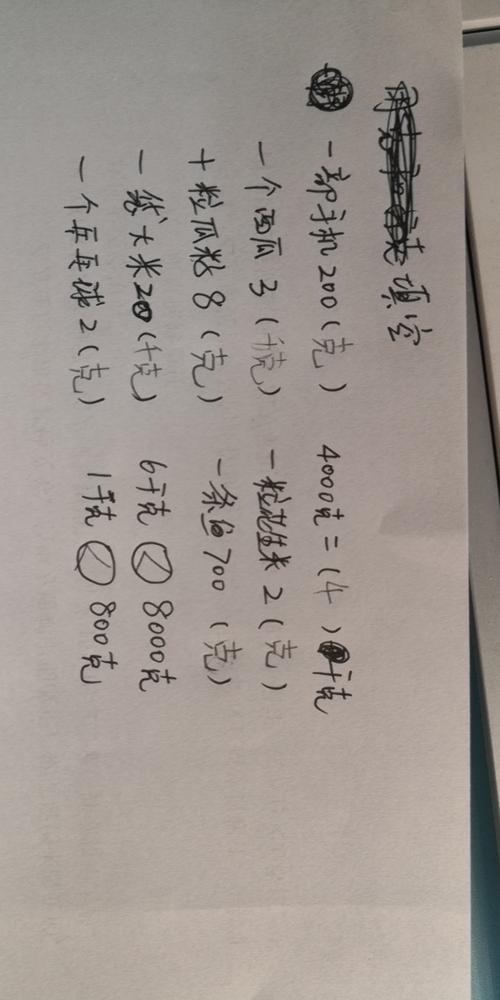 填空
一部手机200(克) 4000克=(4)千克
一个西瓜3(千克) 一粒花生米2(克)
十粒瓜籽8(克) 一条鱼700(克)
一袋大米20(千克) 6千克 > 8000克
一个乒乓球2(克) 1千克 > 800克